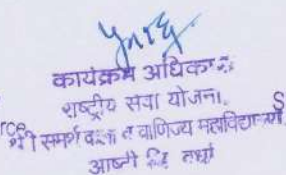 कार्यक्रम अधिकारी
राष्ट्रीय सेवा योजना.
श्री समर्थ कला व वाणिज्य महाविद्यालय
आष्टी जि. वर्धा